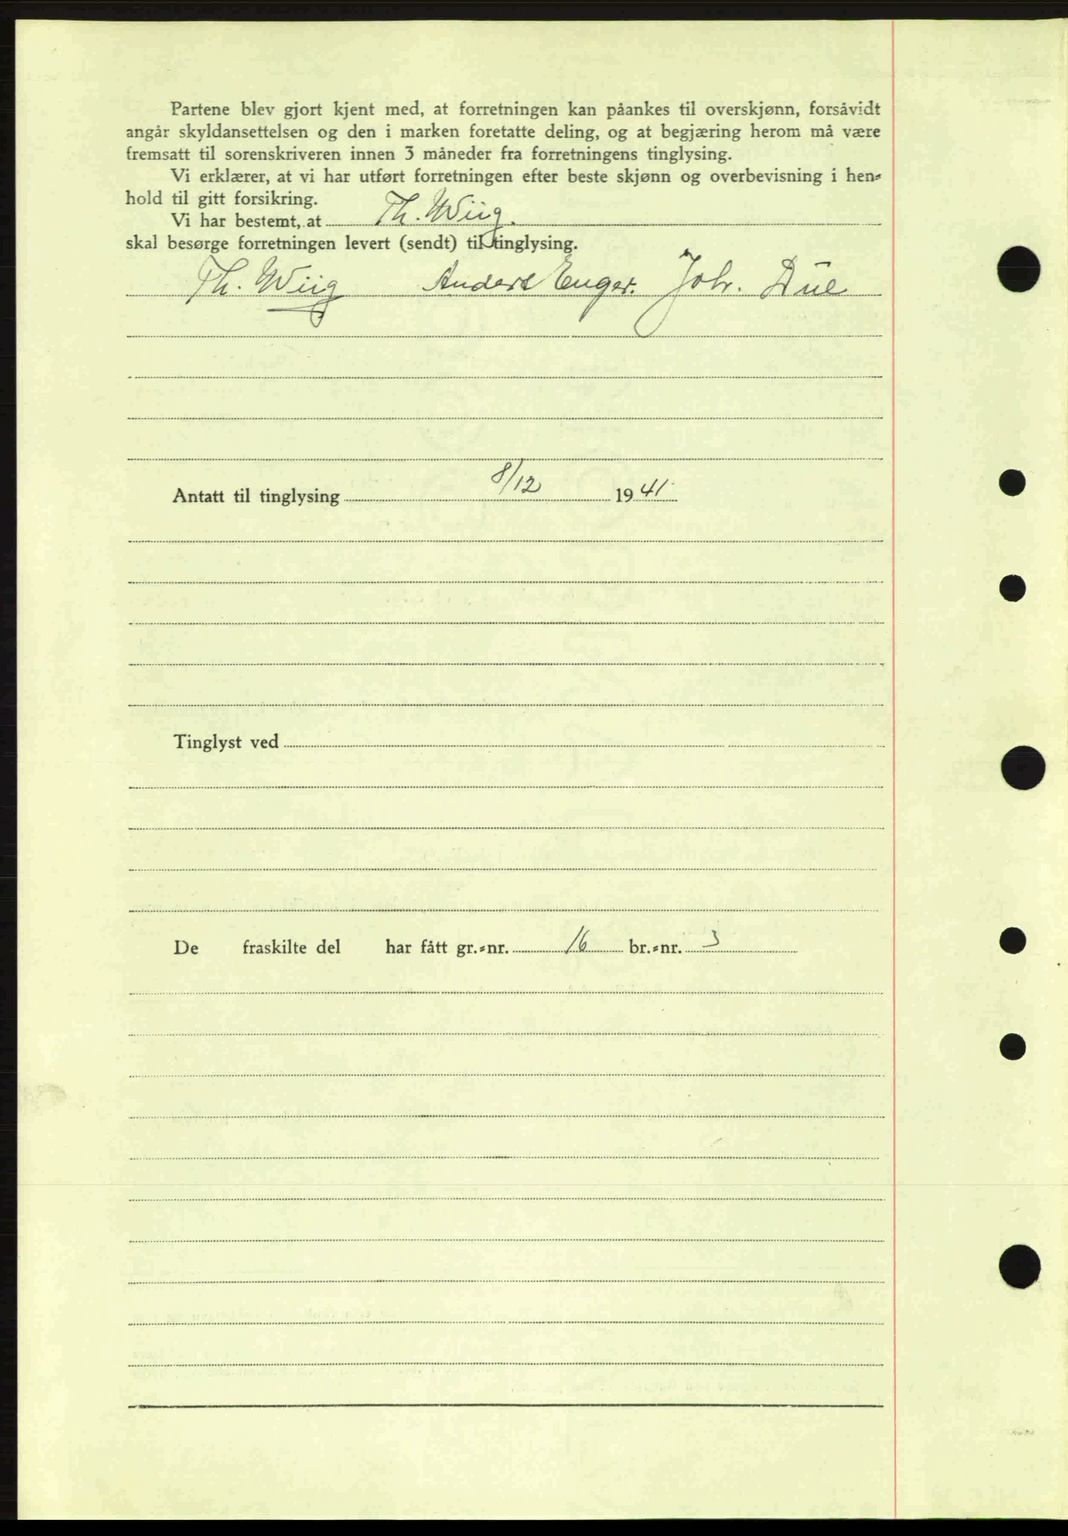 Partene blev gjort kjent med, at forretningen kan påankes til overskjønn, forsåvidt
angår skyldansettelsen og den i marken foretatte deling, og at begjæring herom må være
fremsatt til sorenskriveren innen 3 måneder fra forretningens tinglysing.
Vi erklærer, at vi har utført forretningen efter beste skjønn og overbevisning i hen-
hold til gitt forsikring.
Vi har bestemt, at Th. Wiig.
skal besørge forretningen levert (sendt) til tinglysing.
Th. Wiig Anders Enger. Joh. Due
Antatt til tinglysing 8/12 1941
Tinglyst ved
De fraskilte del har fått gr.-nr. 16 br.-nr. 3